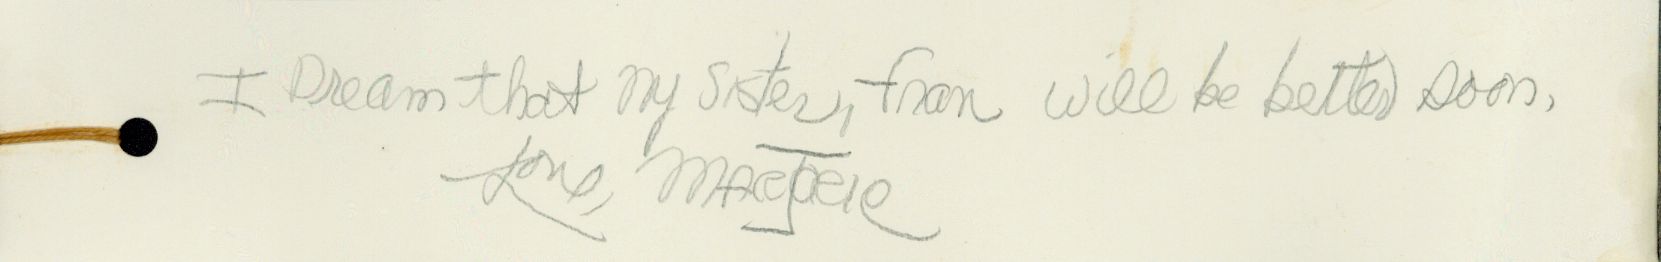 I Dream that my sister, Fran will be better soon.
Love, Marjorie